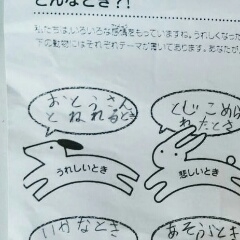 こんなとき?!
私たちは、いろいろな感情をもっていますね。うれしくなった
下の動物にはそれぞれテーマが書いてあります。あなたが、
おとうさん
とねれるとき
とじこめら
れたとき
うれしいとき
悲しいとき
いけなとき
あそぶとき